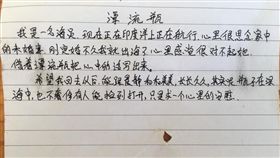 漂流瓶
我是一名海员，现在正在印度洋上正在航行，心里很思念家中
的未婚妻，刚完婚不久我就出海了，心里感觉很对不起她。
借着漂流瓶把心中的话写出来。
希望我回去以后，能跟 和和美美，长长久久。其实说瓶子在深
海中，也不奢侈有人能捡到打开，只是求一个心里的安慰。